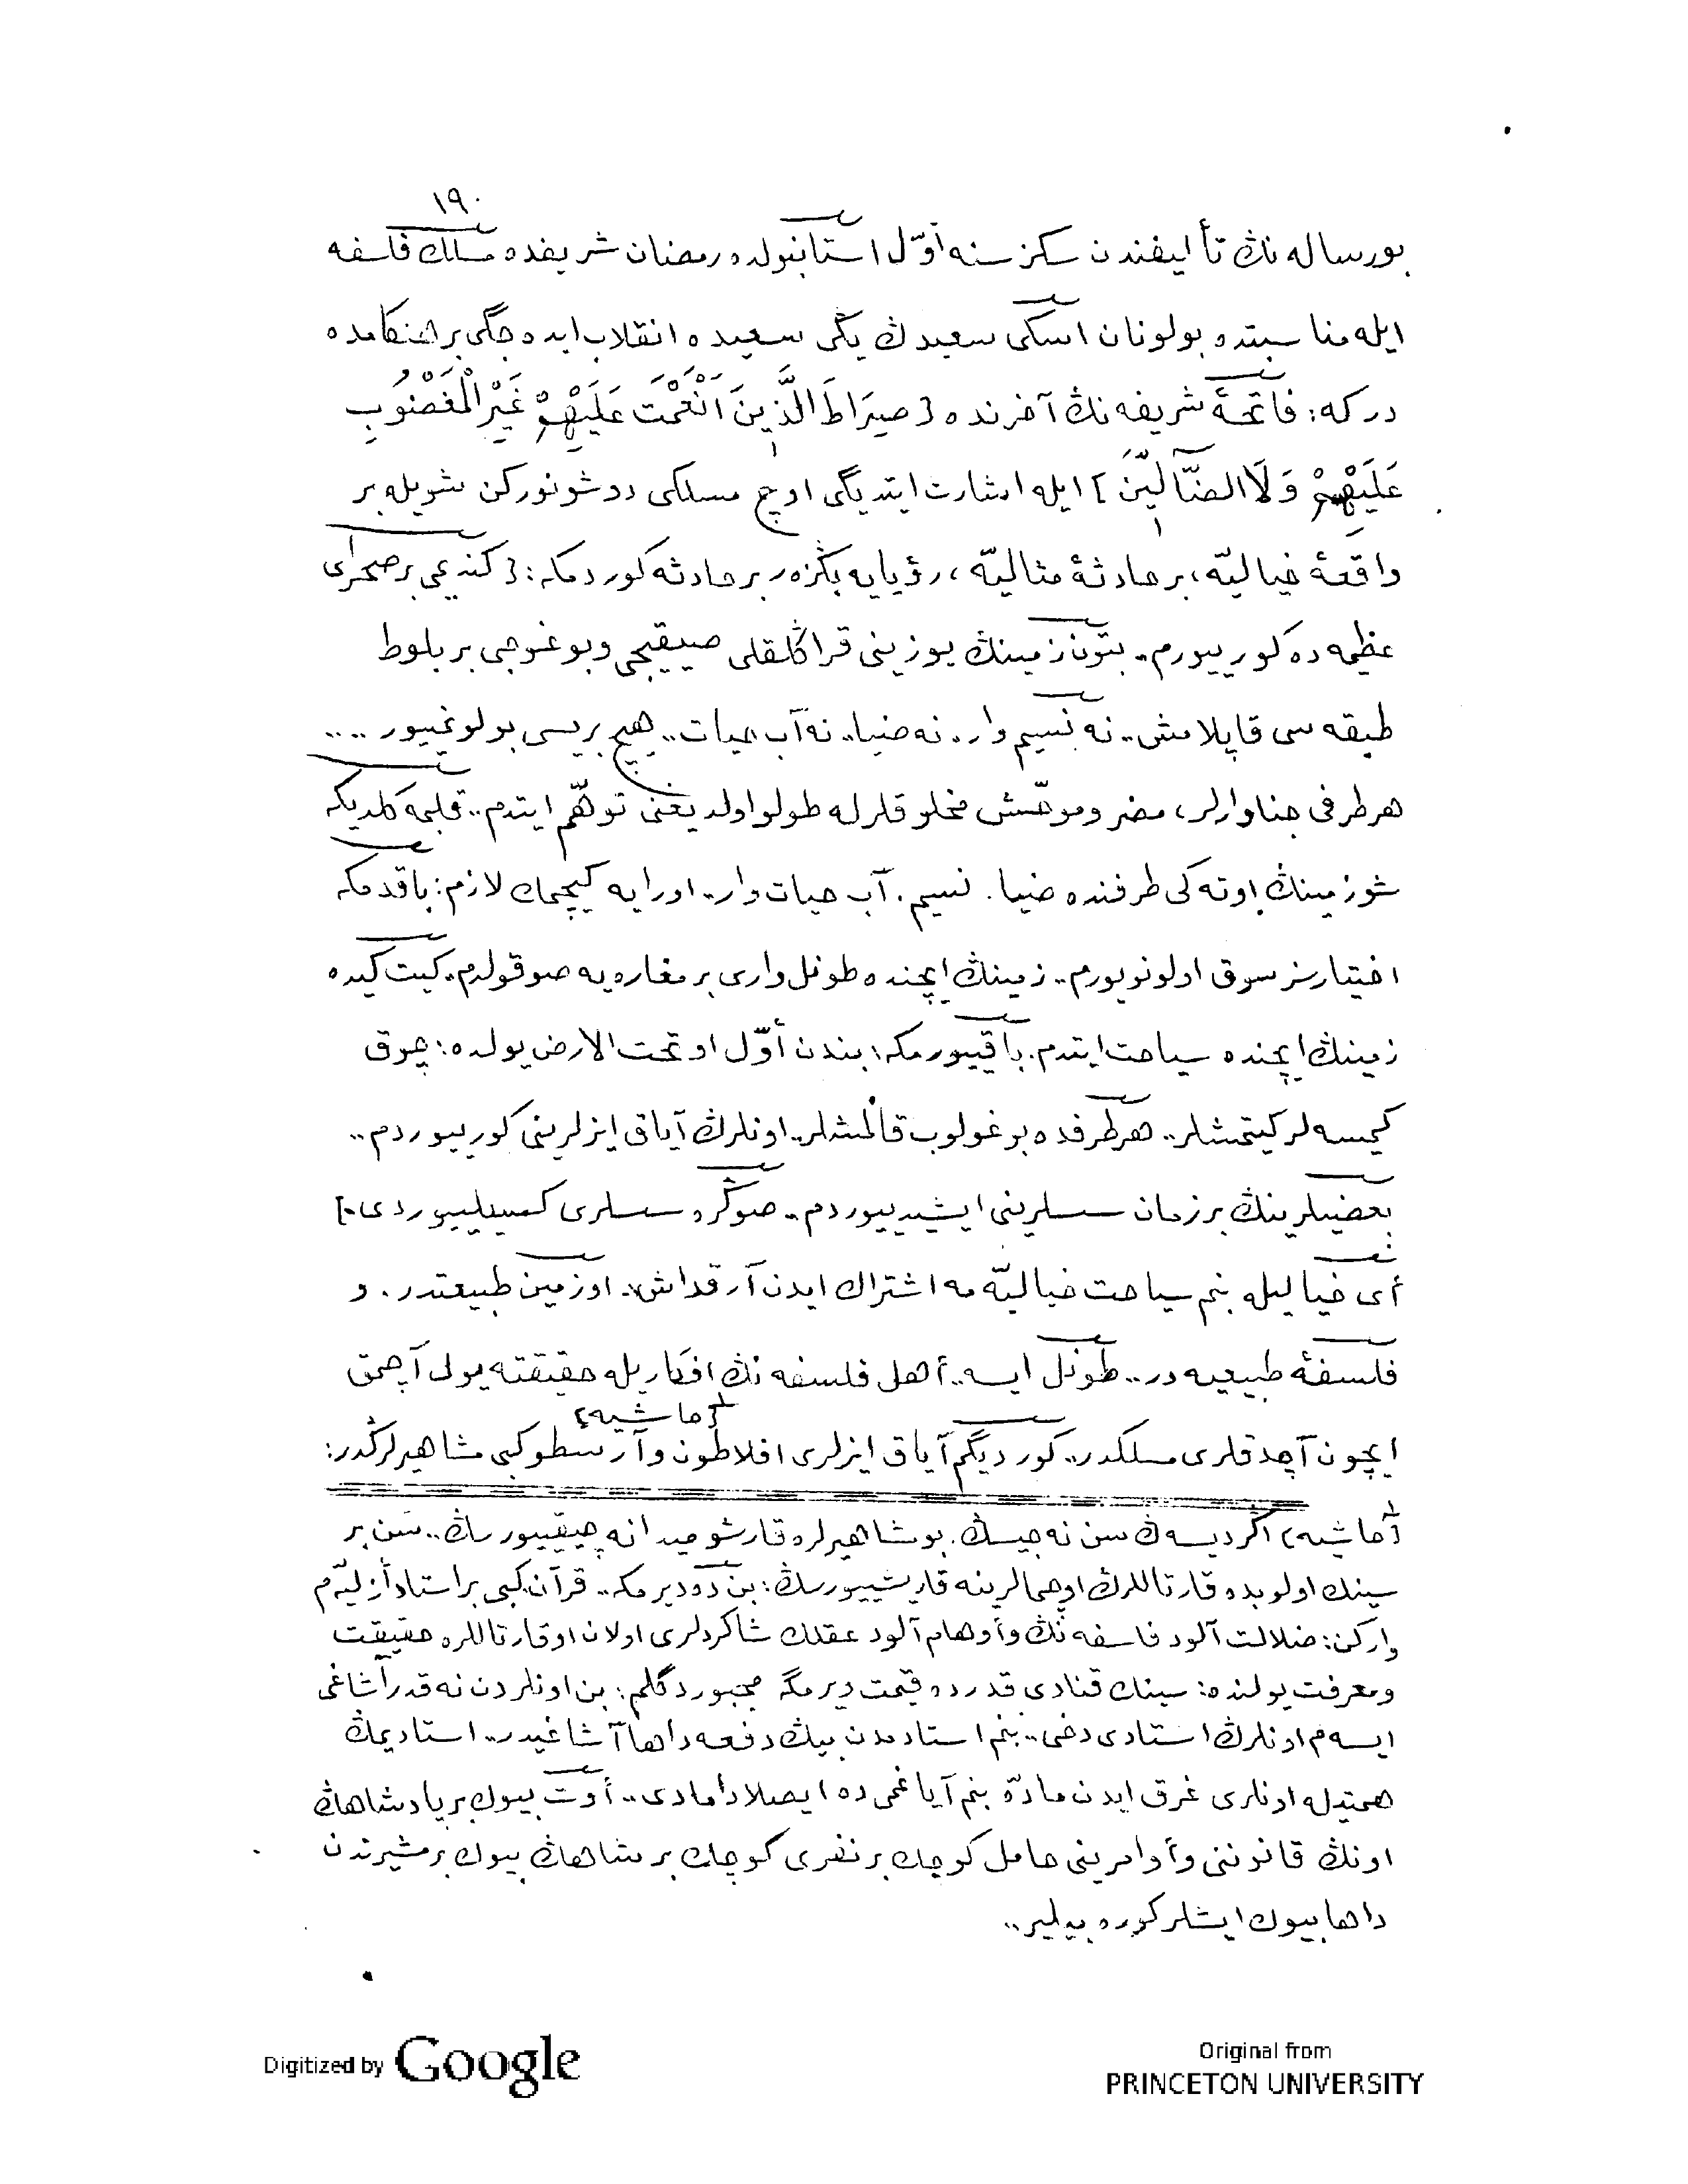 ١٩٠
بورساله نڭ تأليفندن سكز سنه أوّل استانبولده رمضان شريفده مسلك فلسفه
ايله مناسبتده بولونان اسكى سعيدڭ يڭى سعيده انقلاب ايده جگى بر هنكامده
در كه: فاتحۀ شريفه نڭ آخرنده [صِرَاطَ الَّذِينَ اَنْعَمْتَ عَلَيْهِمْ غَيْرِ الْمَغْضُوبِ
عَلَيْهِمْ وَلَا الضَّآلِّينَ] ايله اشارت ايتديگى اوچ مسلكى دوشونوركن شويله بر
واقعۀ خياليّه، بر حادثۀ مثاليّه، رؤيايه بڭزر بر حادثه كوردمكه: [كنديمى بر صحراى
عظيمه ده كورييورم.. بتون زمينڭ يوزينى قراڭلقلى صيقيجى وبوغوجى بر بلوط
طبقه سى قاپلامش.. نه نسيم وار. نه ضيا.. نه آب حيات.. هيچ بريسى بولونمييور ....
هر طرفى جناوارلر، مضر وموحّش مخلوقلرله طولو اولديغنى توهّم ايتدم.. قلبمه كلديكه
شو زمينڭ اوته كى طرفنده ضيا. نسيم. آب حيات وار.. اورايه كيچمك لازم: باقدمكه
اختيارسز سوق اولونويورم.. زمينڭ ايچنده طونل وارى بر مغاره يه صوقولدم. كيت كيده
زمينڭ ايچنده سياحت ايتدم. باقييورمكه: بندن أوّل او تحت الارض يولده: چوق
كيمسه لر كيتمشلر.. هر طرفده بوغولوب قالمشلر.. اونلرڭ آياق ايزلرينى كورييوردم..
بعضيلرينڭ بر زمان سسلرينى ايشيدييوردم.. صوڭره سسلرى كسيلييوردى.]
أى خياليله بنم سياحت خياليّه مه اشتراك ايدن آرقداش. او زمين طبيعتدر. و
فلسفۀ طبيعيه در.. طونل ايسه.. أهل فلسفه نڭ افكاريله حقيقته يول آچمق
[حاشيه]
ايچون آچدقلرى مسلكدر.. كورديگم آياق ايزلرى افلاطون وآرسطو كبى مشاهيرلرڭدر:
[حاشيه] اڭر ديسه ڭ سن نه جيسڭ. بو مشاهيرلره قارشو ميدانه چيقييورسڭ.. سن بر
سينك اولوبده قارتاللرڭ اوچمالرينه قاريشييورسڭ: بن ده ديرمكه.. قرآن كبى بر استاد أزليّم
واركن: ضلالت آلود فلسفه نڭ وأوهام آلود عقلڭ شاكردلرى اولان او قارتاللره حقيقت
ومعرفت يولنده: سينك قنادى قدرده قيمت ويرمگه مجبور دگلم: بن اونلردن نه قدر آشاغى
ايسه م اونلرڭ استادى دخى.. بنم استادمدن بيڭ دفعه داها آشاغيدر.. استاديمڭ
همتيله اونلرى غرق ايدن مادّه بنم آياغمى ده ايصلاداماদى.. أوت بيوك بر پادشاهڭ
اونڭ قانوننى وأوامرينى حامل كوچك بر نفرى كوچك بر شاهڭ بيوك بر مشيرندن
داها بيوك ايشلر كوره بيلير..
Digitized by Google
Original from
PRINCETON UNIVERSITY